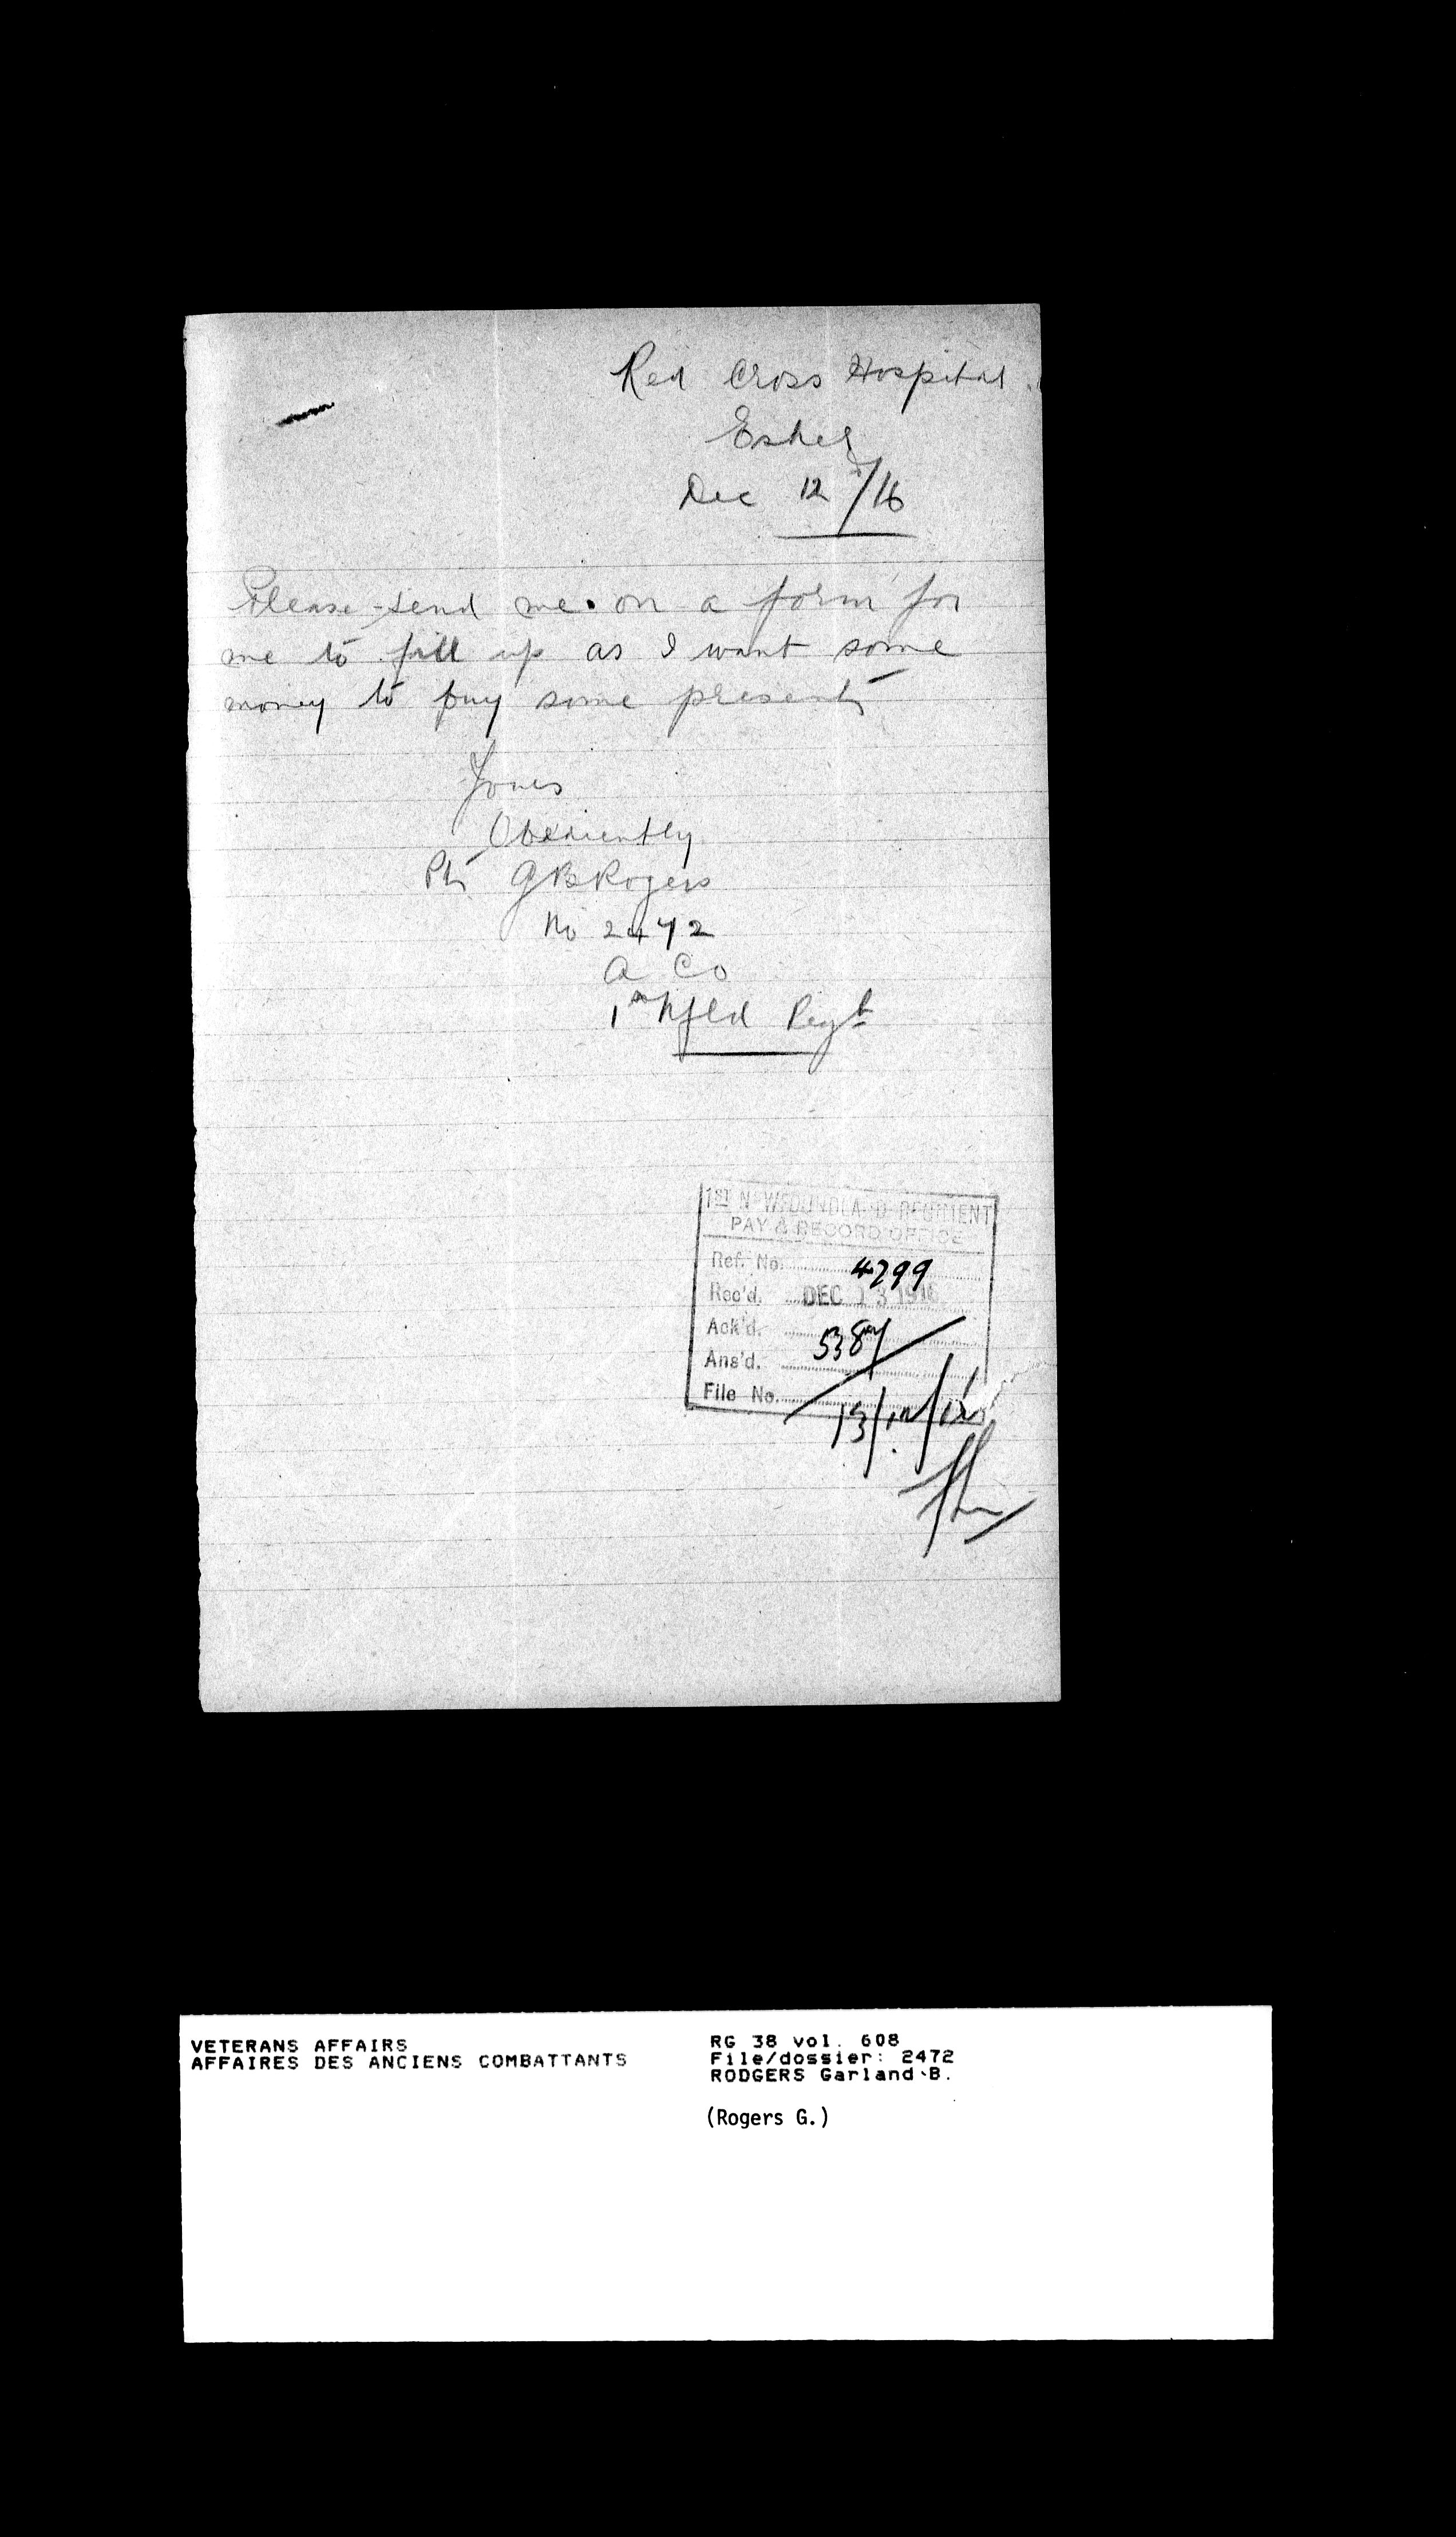 Red Cross Hospital
Esher
Dec 12/16
Please send me on a form for
me to fill up as I want some
money to buy some presents
Yours
Obediently
Pte G B Rogers
No 2472
A Co
1st Nfld Regt
1ST NEWFOUNDLAND REGIMENT
PAY & RECORD OFFICE
Ref. No. 4799
Rec'd. DEC 13 1916
Ack'd.
Ans'd. 5387
File No.
13/12/16
VETERANS AFFAIRS
AFFAIRES DES ANCIENS COMBATTANTS
RG 38 vol. 608
File/dossier: 2472
RODGERS Garland B.
(Rogers G.)